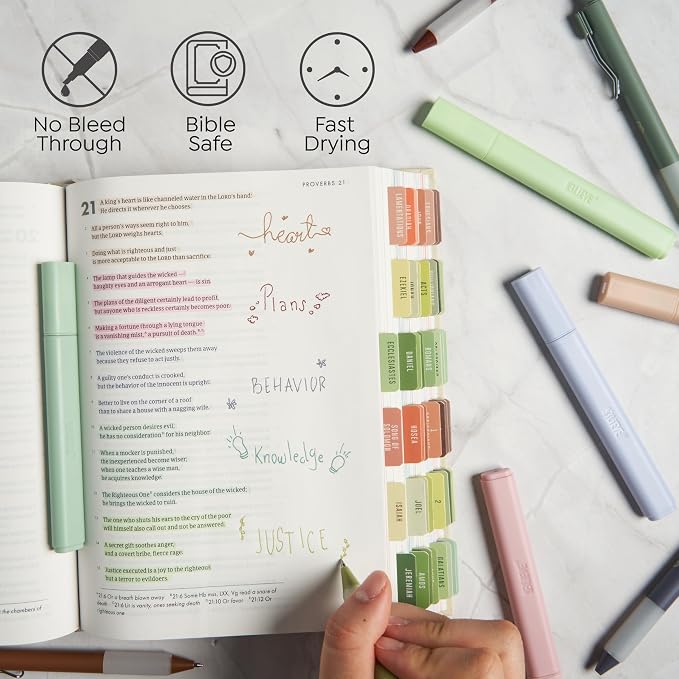 No Bleed
Through
Bible
Safe
Fast
Drying
PROVERBS 21
21 A king's heart is like channeled water in the LORD's hand:
He directs it wherever he chooses.
All a person's ways seem right to him,
but the LORD weighs hearts.
Doing what is righteous and just
is more acceptable to the LORD than sacrifice.
The lamp that guides the wicked —
haughty eyes and an arrogant heart — is sin.
The plans of the diligent certainly lead to profit,
but anyone who is reckless certainly becomes poor.
Making a fortune through a lying tongue
is a vanishing mist, a pursuit of death.
The violence of the wicked sweeps them away
because they refuse to act justly.
A guilty one's conduct is crooked,
but the behavior of the innocent is upright.
Better to live on the corner of a roof
than to share a house with a nagging wife.
A wicked person desires evil;
he has no consideration for his neighbor.
When a mocker is punished,
the inexperienced become wiser;
when one teaches a wise man,
he acquires knowledge.
The Righteous One considers the house of the wicked;
he brings the wicked to ruin.
The one who shuts his ears to the cry of the poor
will himself also call out and not be answered.
A secret gift soothes anger,
and a covert bribe, fierce rage.
Justice executed is a joy to the righteous
but a terror to evildoers.
21:6 Or a breath blown away 21:6 Some Hb mss, LXX, Vg read a snare of
death 21:6 Lit is vanity, ones seeking death 21:10 Or favor 21:12 Or
righteous one
heart
Plans
BEHAVIOR
Knowledge
JUSTICE
the chambers of
LAMENTATIONS
EZEKIEL
ACTS
ECCLESIASTES
DANIEL
ROMANS
SONG OF
SOLOMON
HOSEA
ISAIAH
JOEL
2
JEREMIAH
AMOS
GALATIANS